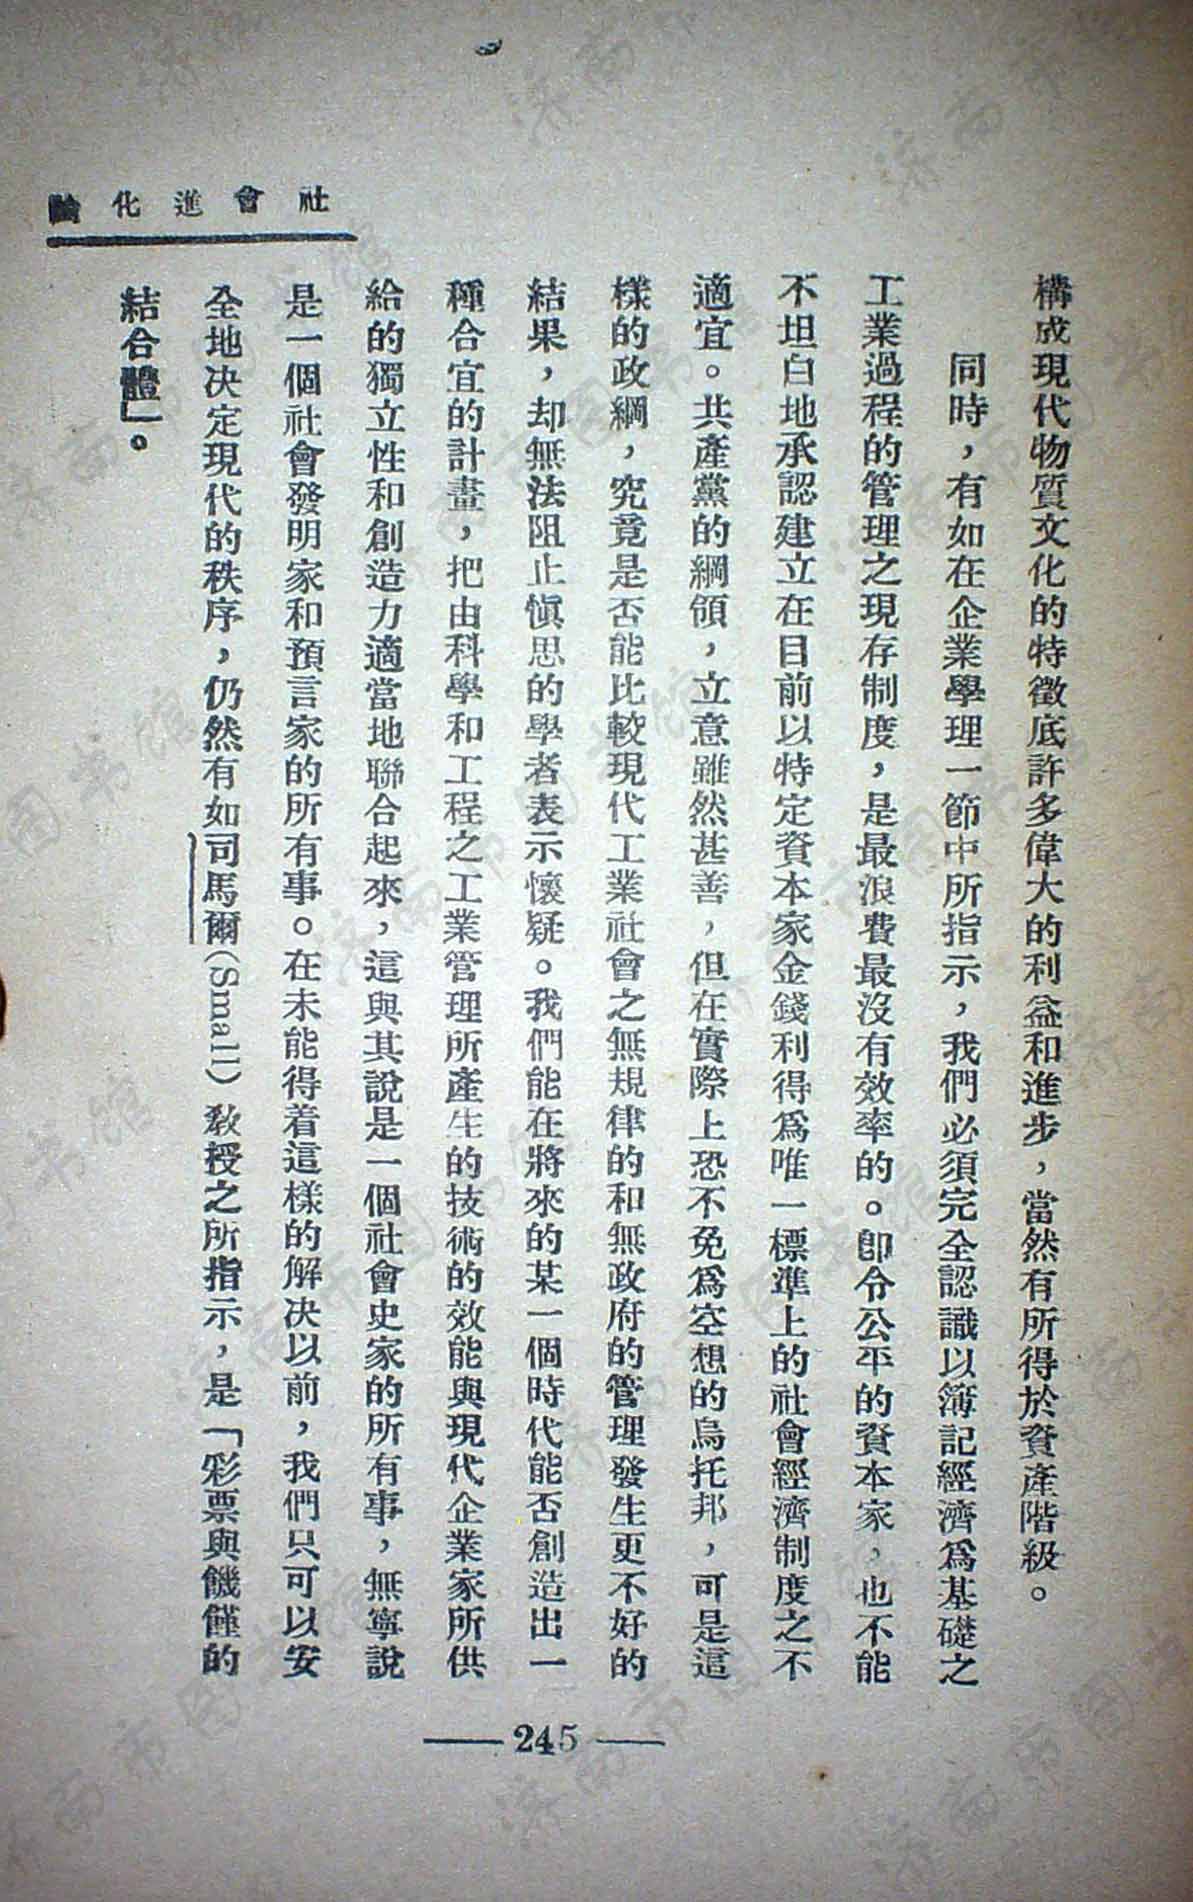 社會進化論
構成現代物質文化的特徵底許多偉大的利益和進步，當然有所得於資產階級。
同時，有如在企業學理一節中所指示，我們必須完全認識以簿記經濟爲基礎之
工業過程的管理之現存制度，是最浪費最沒有效率的。卽令公平的資本家，也不能
不坦白地承認建立在目前以特定資本家金錢利得爲唯一標準上的社會經濟制度之不
適宜。共產黨的綱領，立意雖然甚善，但在實際上恐不免爲空想的烏托邦，可是這
樣的政綱，究竟是否能比較現代工業社會之無規律的和無政府的管理發生更不好的
結果，却無法阻止愼思的學者表示懷疑。我們能在將來的某一個時代能否創造出一
種合宜的計畫，把由科學和工程之工業管理所產生的技術的效能與現代企業家所供
給的獨立性和創造力適當地聯合起來，這與其說是一個社會史家的所有事，無寧說
是一個社會發明家和預言家的所有事。在未能得着這樣的解決以前，我們只可以安
全地決定現代的秩序，仍然有如司馬爾(Small)敎授之所指示，是「彩票與饑饉的
結合體」。
— 245 —
济南市图书馆